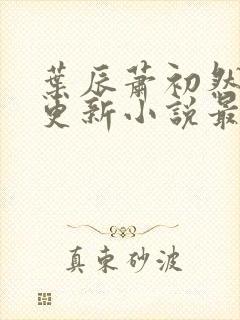 葉辰蕭初然
更新小說最
真束砂波